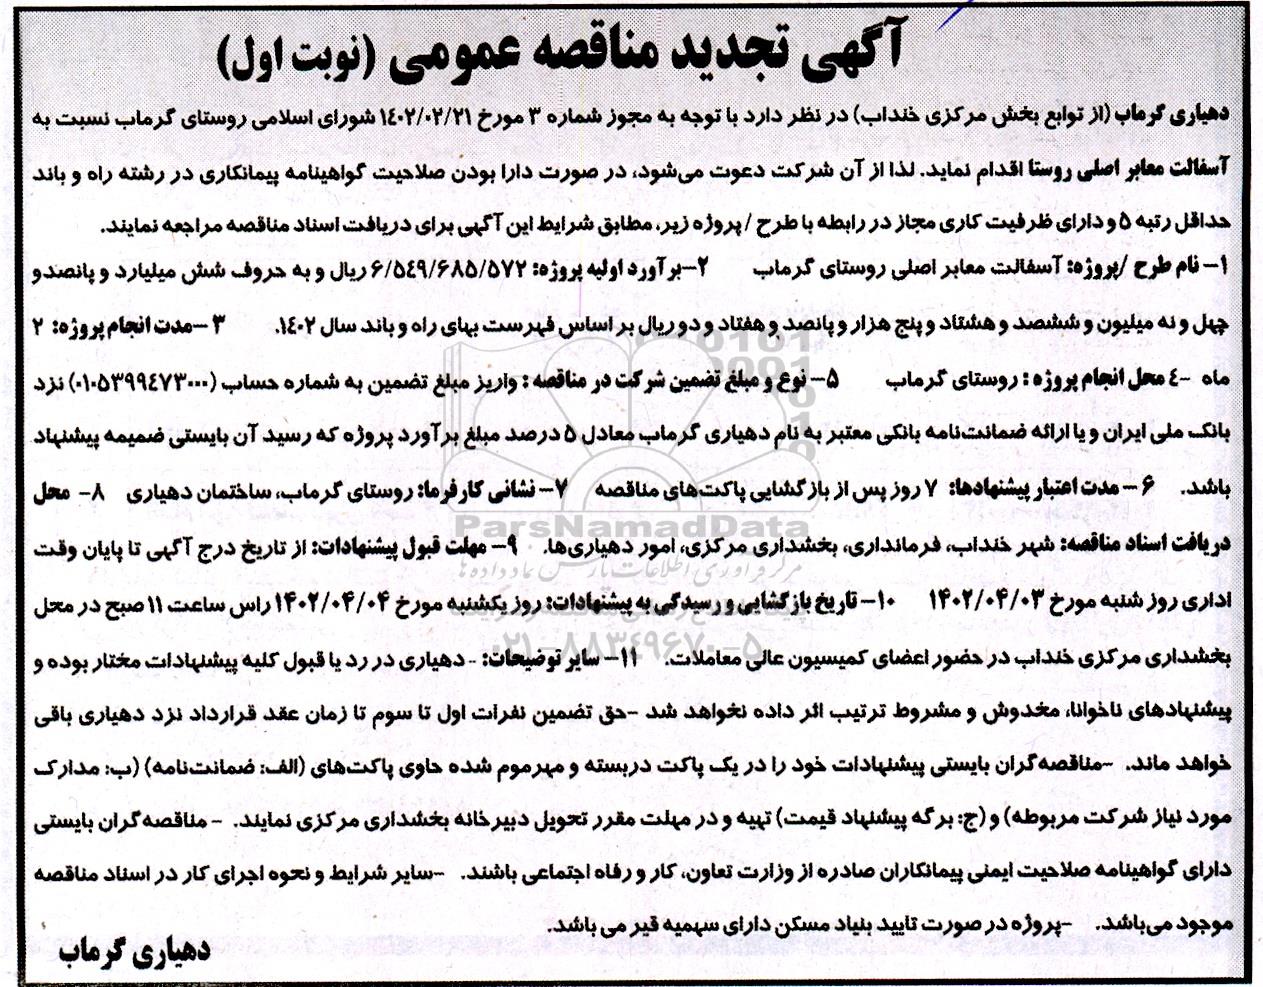 آگهی تجدید مناقصه عمومی (نوبت اول)
دهیاری گرماب (از توابع بخش مرکزی خنداب) در نظر دارد با توجه به مجوز شماره ۳ مورخ ۱۴۰۲/۰۲/۲۱ شورای اسلامی روستای گرماب نسبت به
آسفالت معابر اصلی روستا اقدام نماید. لذا از آن شرکت دعوت می‌شود، در صورت دارا بودن صلاحیت گواهینامه پیمانکاری در رشته راه و باند
حداقل رتبه ۵ و دارای ظرفیت کاری مجاز در رابطه با طرح / پروژه زیر، مطابق شرایط این آگهی برای دریافت اسناد مناقصه مراجعه نمایند.
۱- نام طرح /پروژه: آسفالت معابر اصلی روستای گرماب ۲-برآورد اولیه پروژه: ۶/۵۴۹/۶۸۵/۵۷۲ ریال و به حروف شش میلیارد و پانصدو
چهل و نه میلیون و ششصد و هشتاد و پنج هزار و پانصد و هفتاد و دو ریال بر اساس فهرست بهای راه و باند سال ۱۴۰۲. ۳-مدت انجام پروژه: ۲
ماه ۴- محل انجام پروژه : روستای گرماب ۵- نوع و مبلغ تضمین شرکت در مناقصه : واریز مبلغ تضمین به شماره حساب (۰۱۰۵۳۹۹۴۷۳۰۰۰) نزد
بانک ملی ایران و یا ارائه ضمانت‌نامه بانکی معتبر به نام دهیاری گرماب معادل ۵ درصد مبلغ برآورد پروژه که رسید آن بایستی ضمیمه پیشنهاد
باشد. ۶- مدت اعتبار پیشنهادها: ۷ روز پس از بازگشایی پاکت‌های مناقصه ۷- نشانی کارفرما: روستای گرماب، ساختمان دهیاری ۸- محل
ParsNamadData
دریافت اسناد مناقصه: شهر خنداب، فرمانداری، بخشداری مرکزی، امور دهیاری‌ها. ۹- مهلت قبول پیشنهادات: از تاریخ درج آگهی تا پایان وقت
مرکز فرآوری اطلاعات پارس نماد داده‌ها
اداری روز شنبه مورخ ۱۴۰۲/۰۴/۰۳ ۱۰- تاریخ بازگشایی و رسیدگی به پیشنهادات: روز یکشنبه مورخ ۱۴۰۲/۰۴/۰۴ راس ساعت ۱۱ صبح در محل
بخشداری مرکزی خنداب در حضور اعضای کمیسیون عالی معاملات. ۱۱- سایر توضیحات: - دهیاری در رد یا قبول کلیه پیشنهادات مختار بوده و
۰۲۱-۸۸۳۴۹۶۷۰-۵
پیشنهادهای ناخوانا، مخدوش و مشروط ترتیب اثر داده نخواهد شد -حق تضمین نفرات اول تا سوم تا زمان عقد قرارداد نزد دهیاری باقی
خواهد ماند. -مناقصه‌گران بایستی پیشنهادات خود را در یک پاکت دربسته و مهرموم شده حاوی پاکت‌های (الف: ضمانت‌نامه) (ب: مدارک
مورد نیاز شرکت مربوطه) و (ج: برگه پیشنهاد قیمت) تهیه و در مهلت مقرر تحویل دبیرخانه بخشداری مرکزی نمایند. - مناقصه‌گران بایستی
دارای گواهینامه صلاحیت ایمنی پیمانکاران صادره از وزارت تعاون، کار و رفاه اجتماعی باشند. -سایر شرایط و نحوه اجرای کار در اسناد مناقصه
موجود می‌باشد. -پروژه در صورت تایید بنیاد مسکن دارای سهمیه قیر می باشد.
دهیاری گرماب